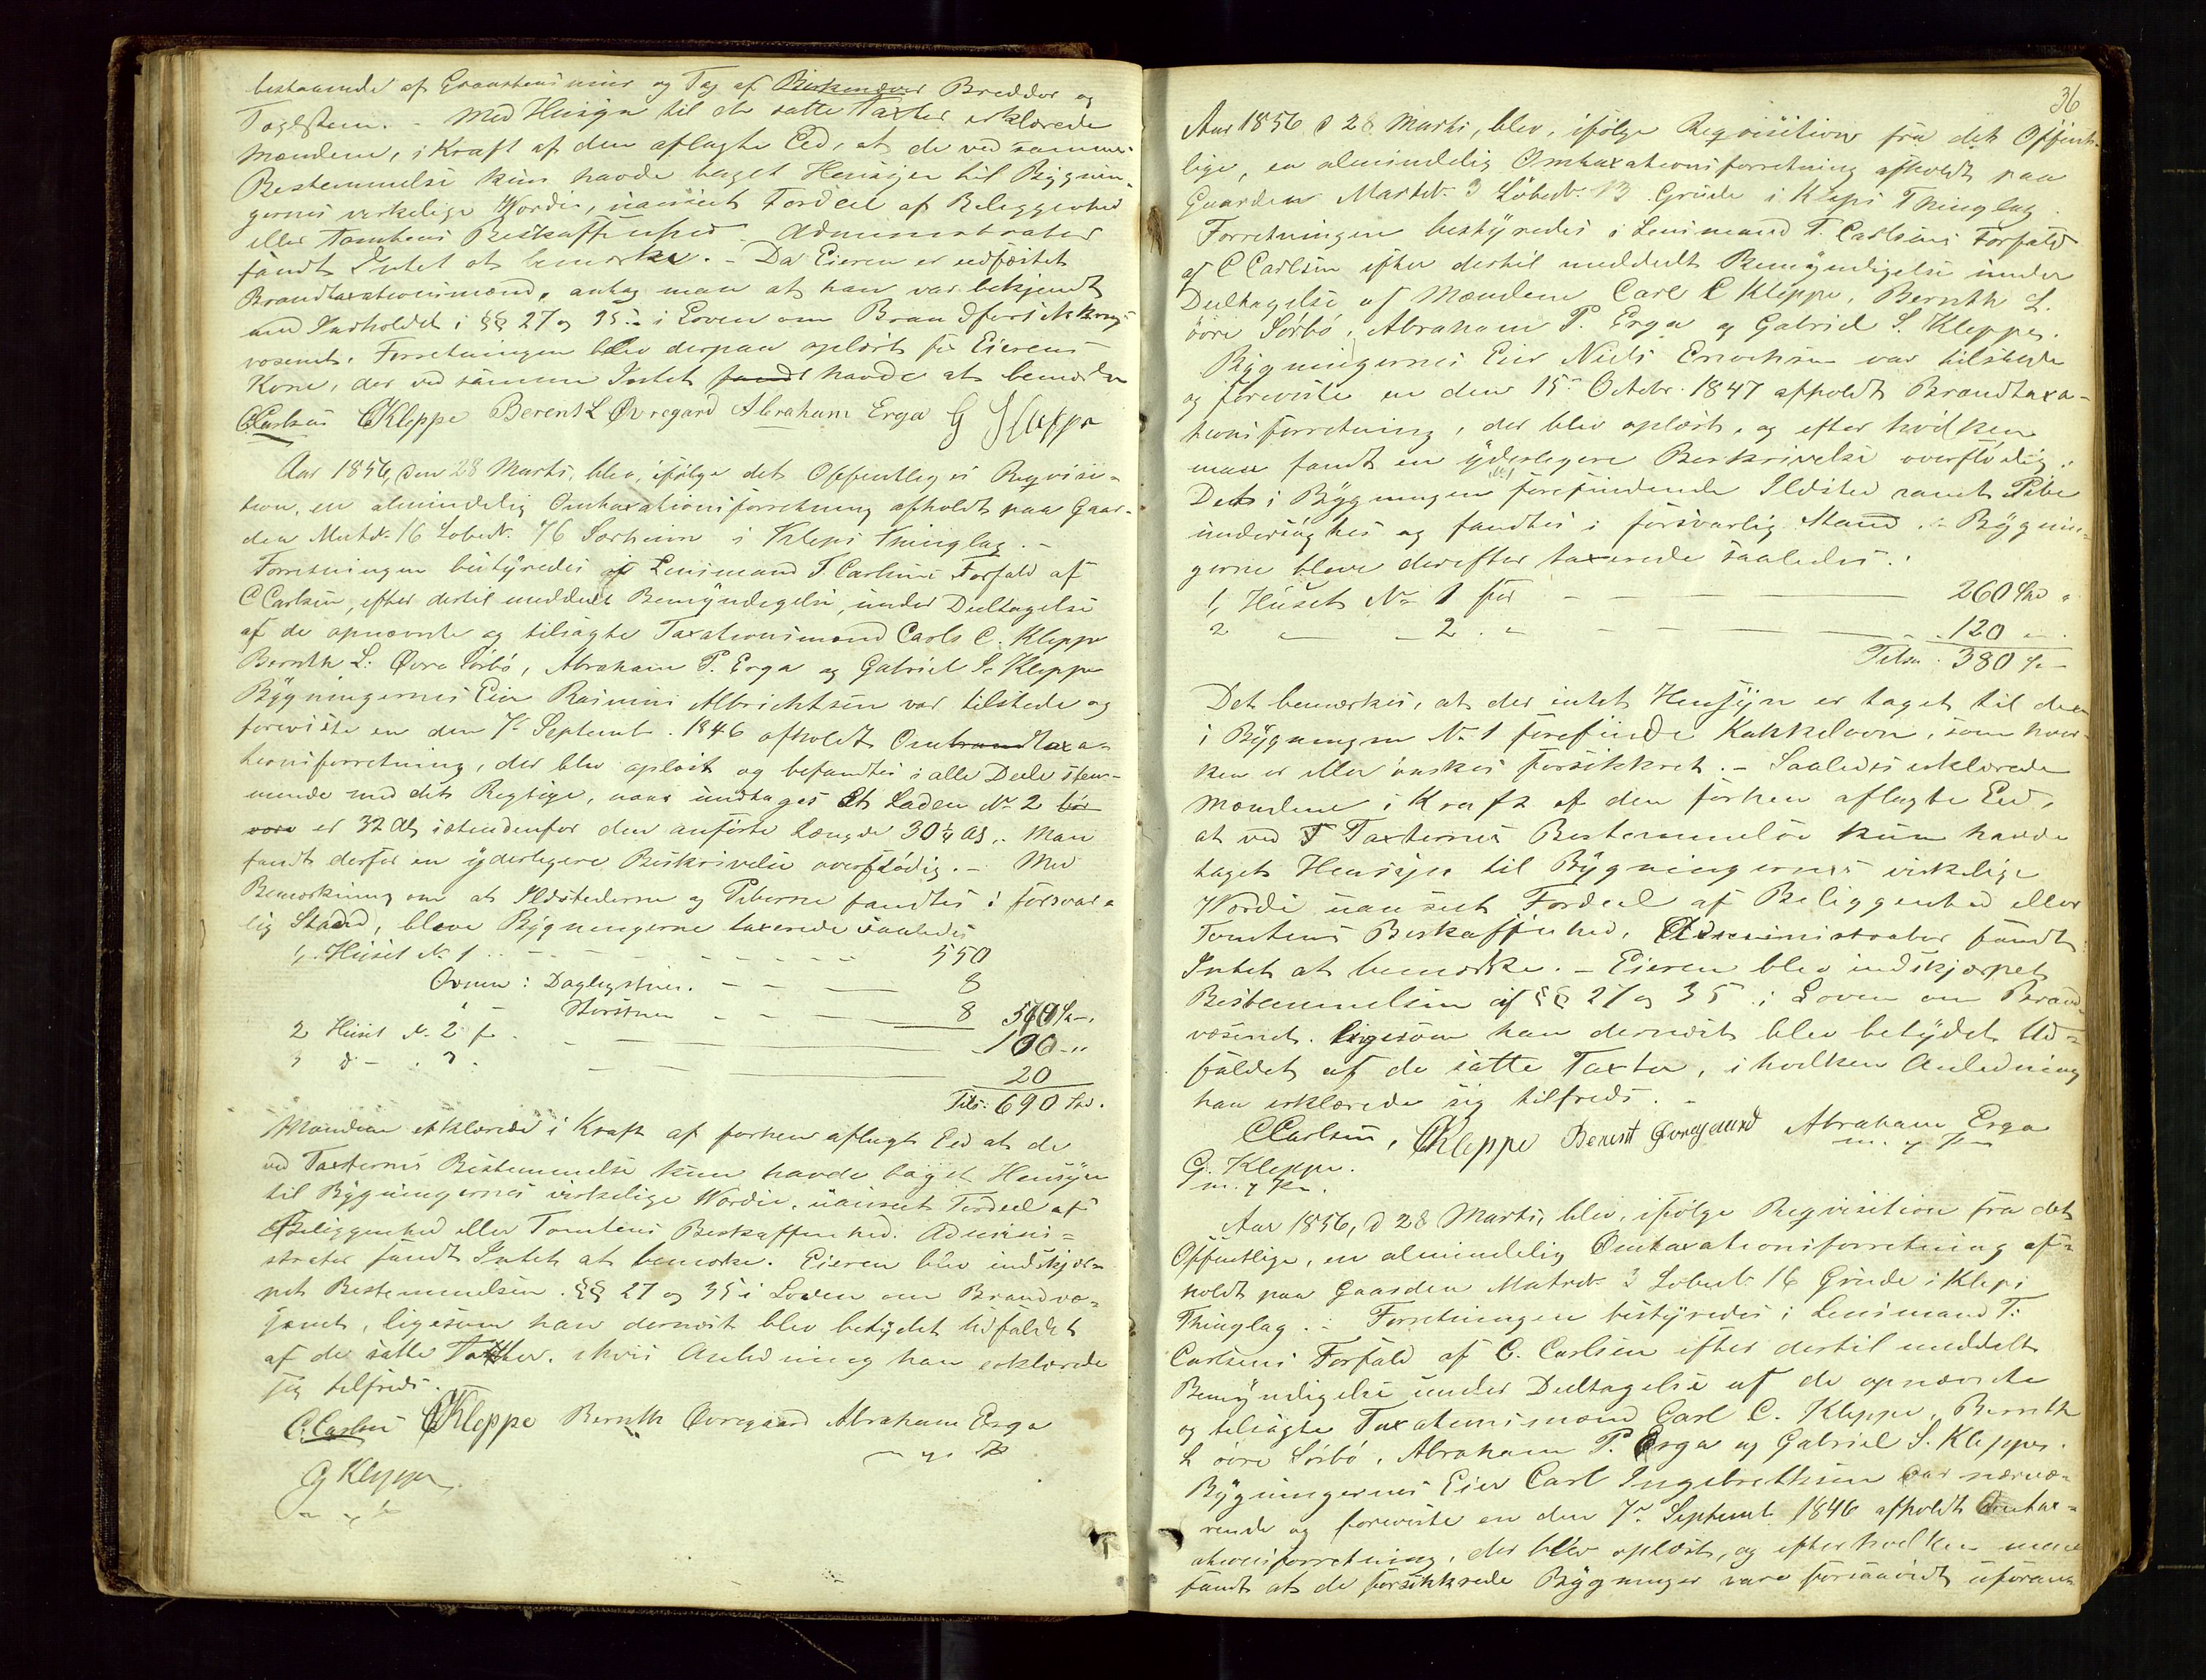 bestaaende af Graasteensmuur og Tag af Birkenæver Bredder og
Taglsteen. - Med Hensyn til de satte Taxter erklærede
Mændene, i Kraft af den aflagte Eed, at de ved sammes
Bestemmelse kun havde taget Hensyn til Bygnin-
gernes virkelige Værdie, uanseet Fordeel af Beliggenhed
eller Tomtens Beskaffenhed. Administrator
fandt Intet at bemærke. - Da Eieren er eedfæstet
Brandtaxationsmand, antog man at han var bekjendt
med Indholdet i §§ 27 og 35 i Loven om Brandforsikkrings-
væsenet. Forretningen blev derpaa oplæst for Eierens
Kone, der ved samme Intet fandt havde at bemærke
CCarlsen CKleppe Berent L Øvregard Abraham Erga G Kleppe
Aar 1856, den 28 Marts, blev, ifølge det Offentliges Reqvisi-
tion, en almindelig Omtaxationsforretning afholdt paa Gaar-
den Matr. 16 Løbe. 76 Sørheim i Kleps Thinglag. -
Forretningen bestyredes i Lensmand T Carlsens Forfald af
C Carlsen, efter dertil meddeelt Bemyndigelse, under Deeltagelse
af de opnævnte og tilsagte Taxationsmænd Carls C. Kleppe
Bernth L. Øvre Sørbø, Abraham P. Erga og Gabriel S. Kleppe
Bygningernes Eier Rasmus Albrichtsen var tilstede og
foreviste en den 7de Septemb. 1846 afholdt Ombrandtaxa-
tionsforretning, der blev oplæst og befandtes i alle Dele stem-
mende med det Rigtige, naar undtages at Laden No 2 bør
være er 32 Al. istedenfor den anførte Længde 30 1/4 Al. Man
fandt derfor en yderligere Beskrivelse overflødig. - Med
Bemærkning om at Ildstederne og Piberne fandtes i forsvar-
lig Stand, bleve Bygningerne taxerede saaledes
1, Huset No 1 . . - - - - - - 550
Ovnen: Dagligstuen. - - — 8
" - Storstuen - - - — 8 566 Sp.
2 Huset No. 2 f . - — — — 100 - "
3 d - . 3. - — — 20
Tils: 690 Spd.
Mændene erklærede i Kraft af forhen aflagt Eed at de
ved Taxternes Bestemmelse kun havde taget Hensyn
til Bygningernes virkelige Værdie, uanseet Fordeel af
Beliggenhed eller Tomtens Beskaffenhed. Admini-
strator fandt Intet at bemærke. Eieren blev indskjær-
pet Bestemmelsen §§ 27 og 35 i Loven om Brandvæ-
senet, ligesom han dernæst blev betydet Udfaldet
af de satte Taxter, i hvis Anledning han erklærede
sig tilfreds. -
C. Carlsen CKleppe Bernth Øvregaard Abraham Erga
G Kleppe
36
Aar 1856 d 28 Marts, blev, ifølge Reqvisition fra det Offent-
lige, en almindelig Omtaxationsforretning afholdt paa
Gaarden Matr. 3 Løbe. 13 Grude i Kleps Thinglag.
Forretningen bestyredes i Lensmand T. Carlsens Forfald
af C Carlsen efter dertil meddeelt Bemyndigelse under
Deeltagelse af Mændene Carl C Kleppe, Bernth L.
øvre Sørbø, Abraham P. Erga og Gabriel S. Kleppe.
Bygningernes Eier Niels Enochsen var tilstede
og foreviste en den 15de Octobr. 1847 afholdt Brandtaxa-
tionsforretning, der blev oplæst, og efter hvilken
man fandt en yderligere Beskrivelse overflødig.
Det i Bygningen forefindende Ildsted samt Pibe
undersøgtes og fandtes i forsvarlig Stand. - Bygnin-
gerne bleve derefter taxerede saaledes:
1, Huset No 1 for - - — — 260 Spd "
2 " - 2. " - - - — — 120 " .
Tilsm. 380 Sp -
Det bemærkes, at der intet Hensyn er taget til den
i Bygningen No 1 forefinde Kakkelovn, som hver-
ken er eller ønskes forsikkret. - Saaledes erklærede
Mændene i Kraft af den forhen aflagte Eed,
at ved Taxternes Bestemmelse kun havde
taget Hensyn til Bygningernes virkelige
Værdi uanseet Fordeel af Beliggenhed eller
Tomtens Beskaffenhed. Administrator fandt
Intet at bemærke. - Eieren blev indskjærpet
Bestemmelsen af §§ 27 og 35 i Loven om Brand-
væsenet. ligesom han dernæst blev betydet Ud-
faldet af de satte Taxter, i hvilken Anledning
han erklærede sig tilfreds. -
CCarlsen, CKleppe Berent Øvregaard Abraham Erga
G. Kleppe.
Aar 1856, d 28 Marts, blev, ifølge Reqvisition fra det
Offentlige, en almindelig Omtaxationsforretning af-
holdt paa Gaarden Matr. 3 Løbe. 16 Grude i Kleps
Thinglag. - Forretningen bestyredes i Lensmand T.
Carlsens Forfald af C. Carlsen efter dertil meddelt
Bemyndigelse under Deeltagelse af de opnævnte
og tilsagte Taxationsmænd Carl C. Kleppe, Bernth
L øvre Sørbø, Abraham P. Erga og Gabriel S. Kleppe.
Bygningernes Eier Carl Ingebretksen var nærvæ-
rende og foreviste en den 7de Septemb 1846 afholdt Omtax-
ationsforretning, der blev oplæst, og efter hvilken man
fandt at de forsikkrede Bygninger vare forsaavidt uforan-